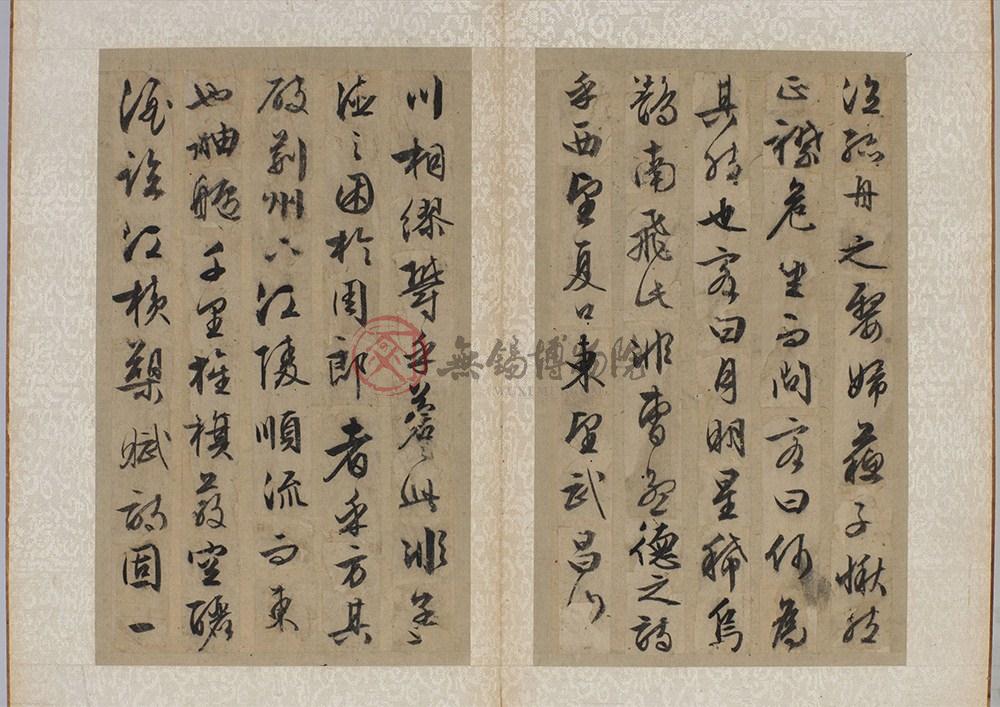 泣孤舟之嫠婦蘇子愀然
正襟危坐而問客曰何為
其然也客曰月明星稀烏
鵲南飛此非曹孟德之詩
乎西望夏口東望武昌山
川相繆鬱乎蒼〻此非孟
德之困於周郎者乎方其
破荊州下江陵順流而東
也舳艫千里旌旗蔽空釃
酒臨江橫槊賦詩固一
無錫博物院
WUXI MUSEUM